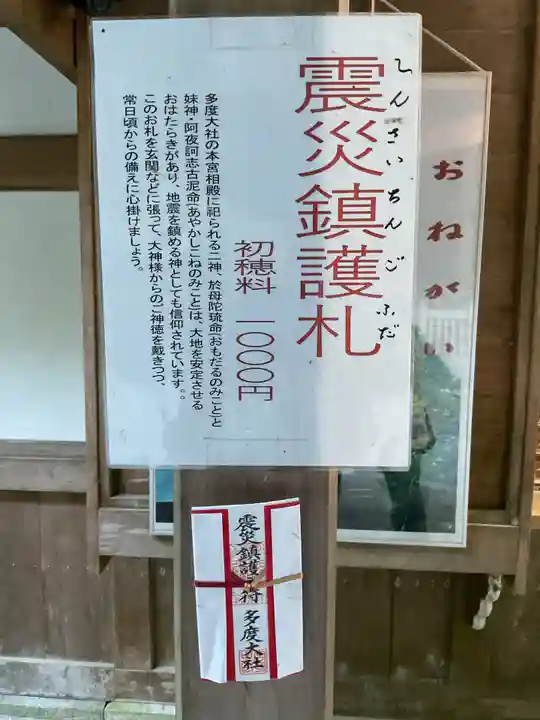 震災鎮護札
しんさいちんごふだ
初穂料　一〇〇〇円
多度大社の本宮相殿に祀られる二神、於母陀琉命(おもだるのみこと)と
妹神・阿夜訶志古泥命(あやかしこねのみこと)は、大地を安定させる
おはたらきがあり、地震を鎮める神としても信仰されています。。
このお札を玄関などに張って、大神様からのご神徳を戴きつつ、
常日頃からの備えに心掛けましょう。
おねがい
震災鎮護之符
多度大社